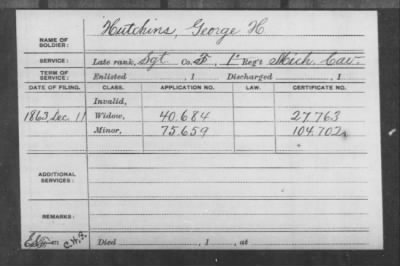 NAME OF SOLDIER: Hutchins, George H
SERVICE: Late rank, Sgt Co. F, 1" Reg't Mich. Cav.
TERM OF SERVICE: Enlisted , 1 Discharged , 1
DATE OF FILING. CLASS. APPLICATION NO. LAW. CERTIFICATE NO.
Invalid,
1863, Dec. 11 Widow, 40.684 27.763
Minor, 75.659 104.702
ADDITIONAL SERVICES:
REMARKS:
Died , 1 , at